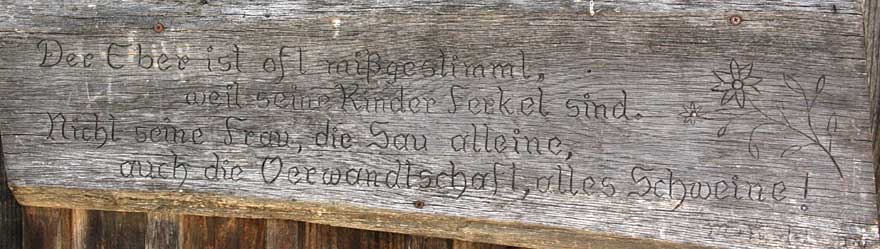 Der Eber ist oft mißgestimmt,
weil seine Kinder Ferkel sind.
Nicht seine Frau, die Sau alleine,
auch die Verwandtschaft, alles Schweine!